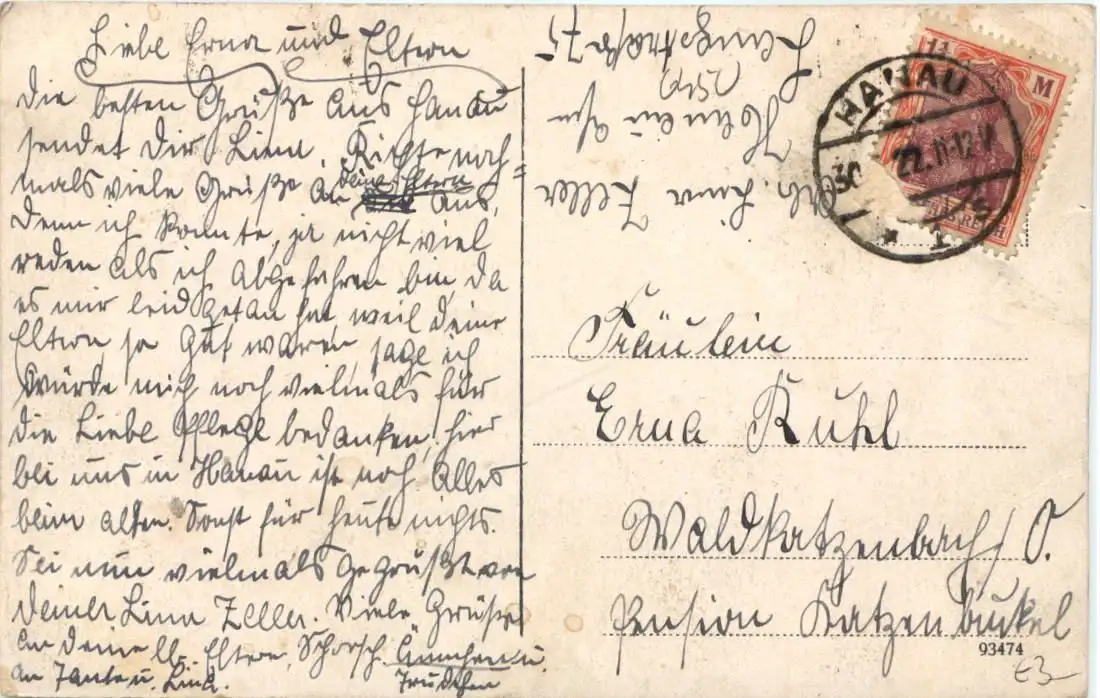 Liebe Erna und Eltern
Die besten Grüße aus Hanau
sendet dir Lina. Richte noch=
mals viele Grüße an deine Eltern aus,
denn ich konnte ja nicht viel
reden als ich abgefahren bin da
es mir leid getan hat, weil deine
Eltern so gut waren, sage ich
würde mich noch vielmals für
die Liebe Pflege bedanken, hier
bei uns in Hanau ist noch Alles
beim alten. Sonst für heute nichts.
Sei nun vielmals gegrüßt von
deiner Lina Zeller. Viele Grüße
an deine ll. Eltern, Schorsch, Ännchen u.
Trudchen
an Tante u. Link.
Abs. Lina Zeller
Hanau a/m
Langstraße 75
1¼ M
HANAU
30 22. 11-12 V.
* 1
REICH
Fräulein
Erna Kuhl
Waldkatzenbach / O.
Pension Katzenbuckel
93474
E3